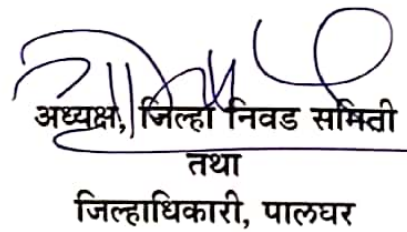 अध्यक्ष, जिल्हा निवड समिती
तथा
जिल्हाधिकारी, पालघर